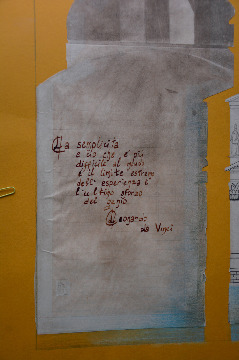 La semplicità
è ciò che è più
difficile al mondo
è il limite estremo
dell'esperienza è
l'ultimo sforzo
del genio.
Leonardo
da Vinci